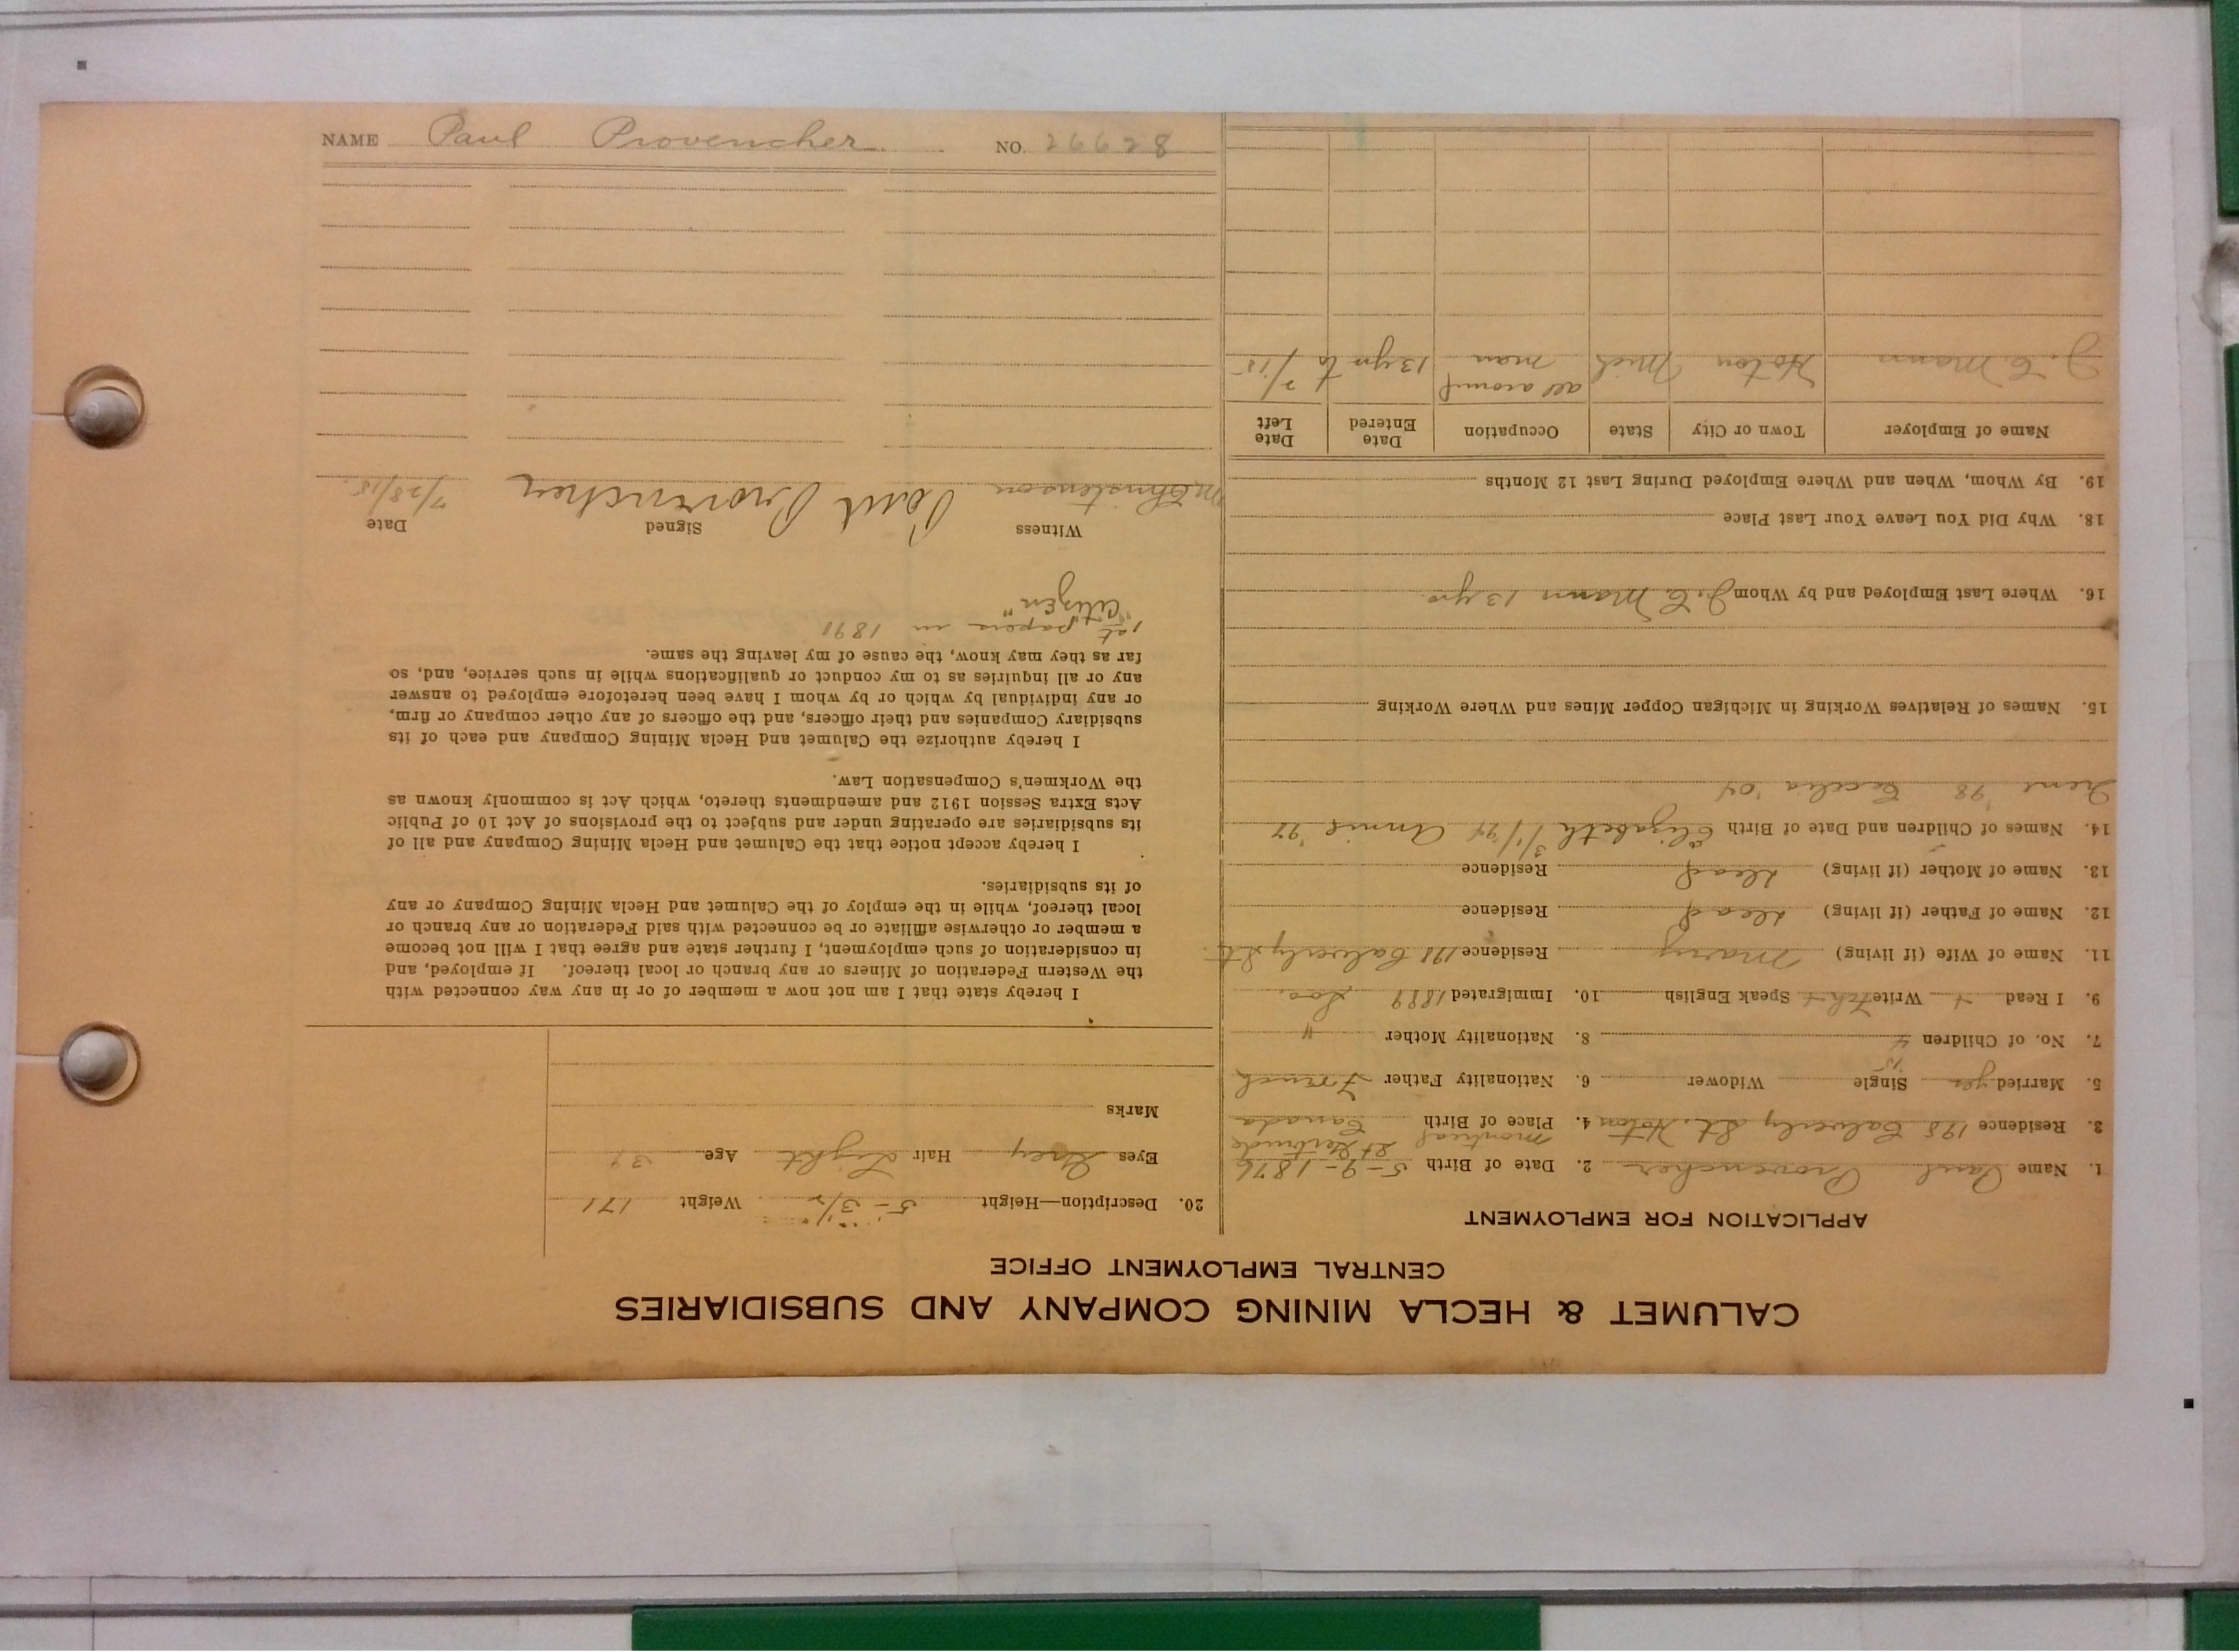 CALUMET & HECLA MINING COMPANY AND SUBSIDIARIES
CENTRAL EMPLOYMENT OFFICE
APPLICATION FOR EMPLOYMENT
1. Name Paul Provencher 2. Date of Birth 5-9-1876
montreal St Gertrude
3. Residence 198 Calverly St. Hoton 4. Place of Birth Canada
5. Married yes Single Widower 6. Nationality Father French
7. No. of Children 4 8. Nationality Mother "
9. I Read + Write Speak English 10. Immigrated 1889 Soo.
11. Name of Wife (if living) Mary Residence 198 Calverly St
12. Name of Father (if living) dead Residence
13. Name of Mother (if living) dead Residence
14. Names of Children and Date of Birth Elizabeth 3/1/94 Annie '97
Irene '98 Cecelia '04
15. Names of Relatives Working in Michigan Copper Mines and Where Working
16. Where Last Employed and by Whom J. C. Mann 13 yrs
18. Why Did You Leave Your Last Place
19. By Whom, When and Where Employed During Last 12 Months
Name of Employer Town or City State Occupation Date Entered Date Left
J. C. Mann Hoton Mich all around man 13 yrs to 7/15
20. Description—Height 5-3½ Weight 171
Eyes Grey Hair Light Age 39
Marks
I hereby state that I am not now a member of or in any way connected with
the Western Federation of Miners or any branch or local thereof. If employed, and
in consideration of such employment, I further state and agree that I will not become
a member or otherwise affiliate or be connected with said Federation or any branch or
local thereof, while in the employ of the Calumet and Hecla Mining Company or any
of its subsidiaries.
I hereby accept notice that the Calumet and Hecla Mining Company and all of
its subsidiaries are operating under and subject to the provisions of Act 10 of Public
Acts Extra Session 1912 and amendments thereto, which Act is commonly known as
the Workmen's Compensation Law.
I hereby authorize the Calumet and Hecla Mining Company and each of its
subsidiary Companies and their officers, and the officers of any other company or firm,
or any individual by which or by whom I have been heretofore employed to answer
any or all inquiries as to my conduct or qualifications while in such service, and, so
far as they may know, the cause of my leaving the same.
1st papers in 1891
"Citizen"
Witness Signed Date
M Christenson Paul Provencher 7/28/15.
NAME Paul Provencher NO. 26628